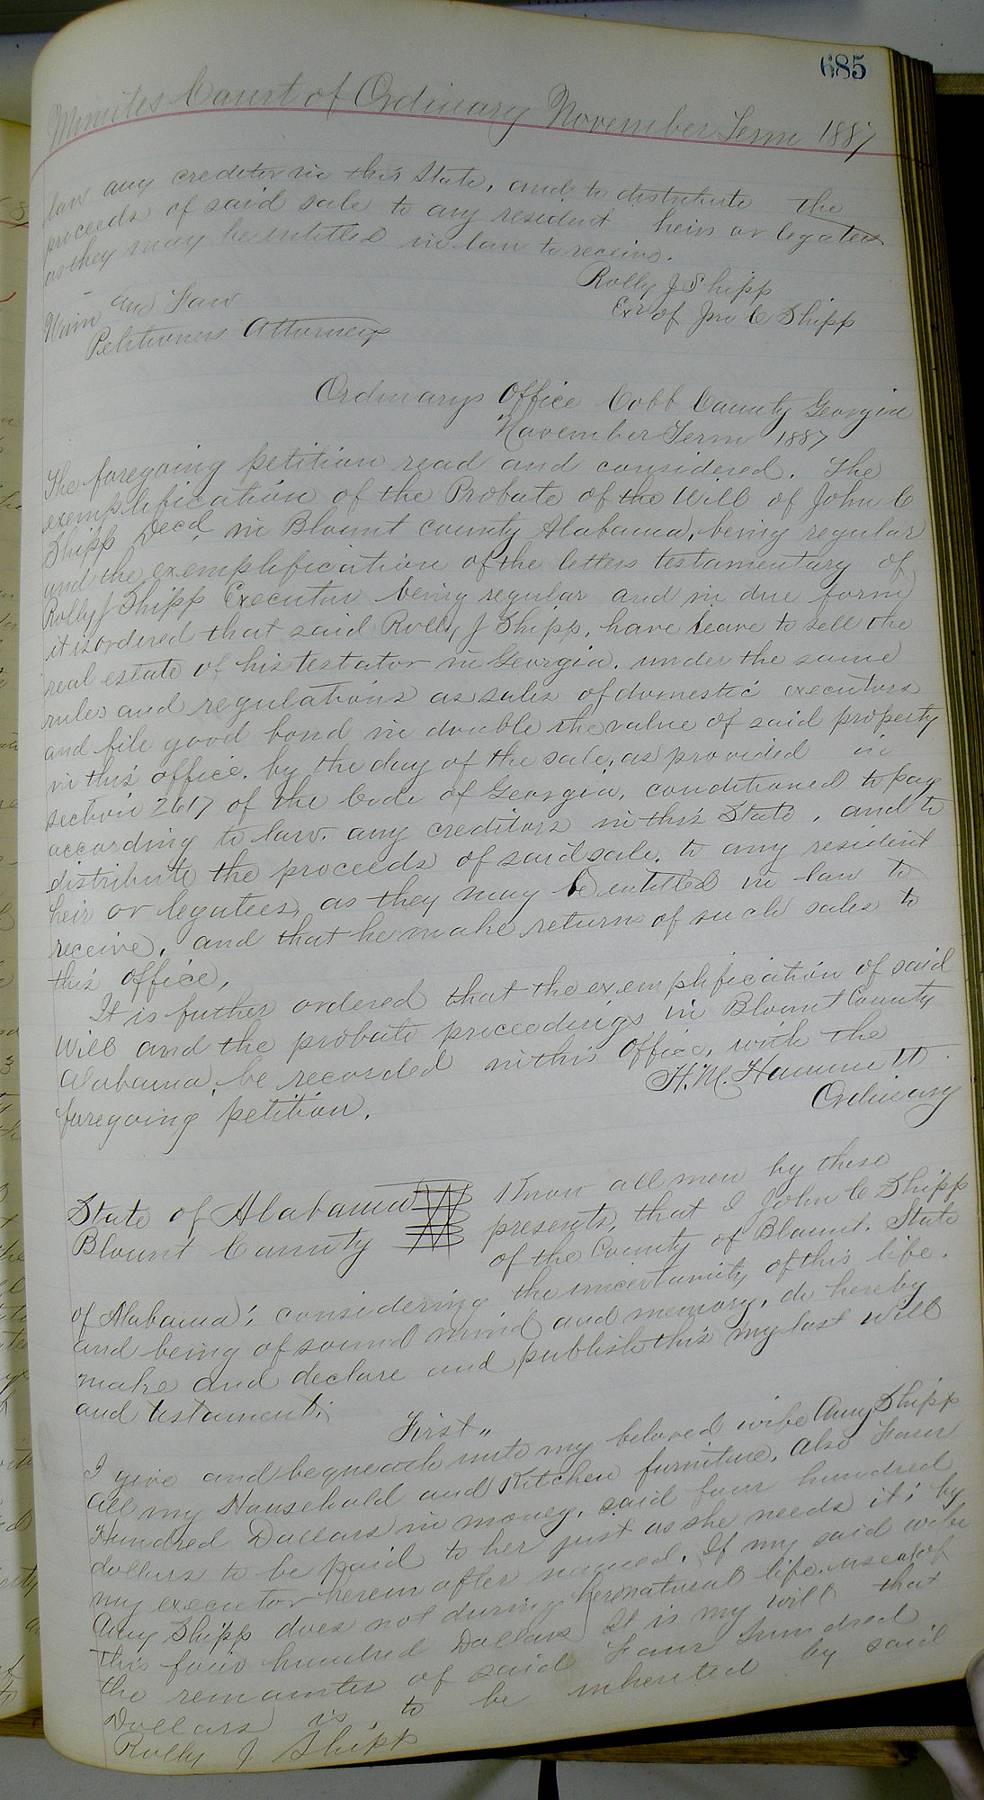 685
Minutes Court of Ordinary November Term 1887
law any creditor in this State, and to distribute the
proceeds of said sale to any resident heirs or legatees
as they may be entitled in law to receive.
Rolly J Shipp
Exr of Jno C Shipp
Winn and Law
Petitioners Attorneys
Ordinarys Office Cobb County Georgia
November Term 1887
The foregoing petition read and considered. The
exemplification of the Probate of the Will of John C
Shipp Decd in Blount County Alabama, being regular
and the exemplification of the letters testamentary of
Rolly J Shipp Executor being regular and in due form
it is ordered that said Rolly J Shipp, have leave to sell the
real estate of his testator in Georgia. under the same
rules and regulations as sales of domestic executors
and file good bond in double the value of said property
in this office. by the day of the sale, as provided in
section 2617 of the Code of Georgia, conditioned to pay
according to law. any creditors in this State, and to
distribute the proceeds of said sale. to any resident
heir or legatees, as they may be entitled in law to
receive, and that he make returns of such sales to
this office,
It is futher ordered that the exemplification of said
Will and the probate proceedings in Blount County
Alabama, be recorded in this Office, with the
foregoing petition.
H. M. Hammett
Ordinary
State of Alabama
Blount County
Know all men by these
presents, that I John C Shipp
of the County of Blount. State
of Alabama; considering the uncertainity of this life.
and being of sound mind and memory, do hereby
make and declare and publish this my last Will
and testament;
First"
I give and bequeath unto my beloved wife Amy Shipp
all my Household and Kitchen furniture, also Four
Hundred Dollars in money, said four hundred
dollars to be paid to her just as she needs it; by
my executor herein after named. If my said wife
Amy Shipp does not during her natural life use all of
this four hundred Dollars It is my will that
the remainter of said Four Hundred
Dollars is to be inherited by said
Rolly J Shipp